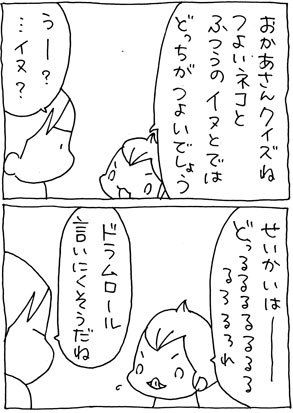 おかあさんクイズね
つよいネコと
ふつうのイヌとでは
どっちがつよいでしょう
うー？
…イヌ？
せいかいは――
どぅるるるるるるる
るろるろれ
ドラムロール
言いにくそうだね